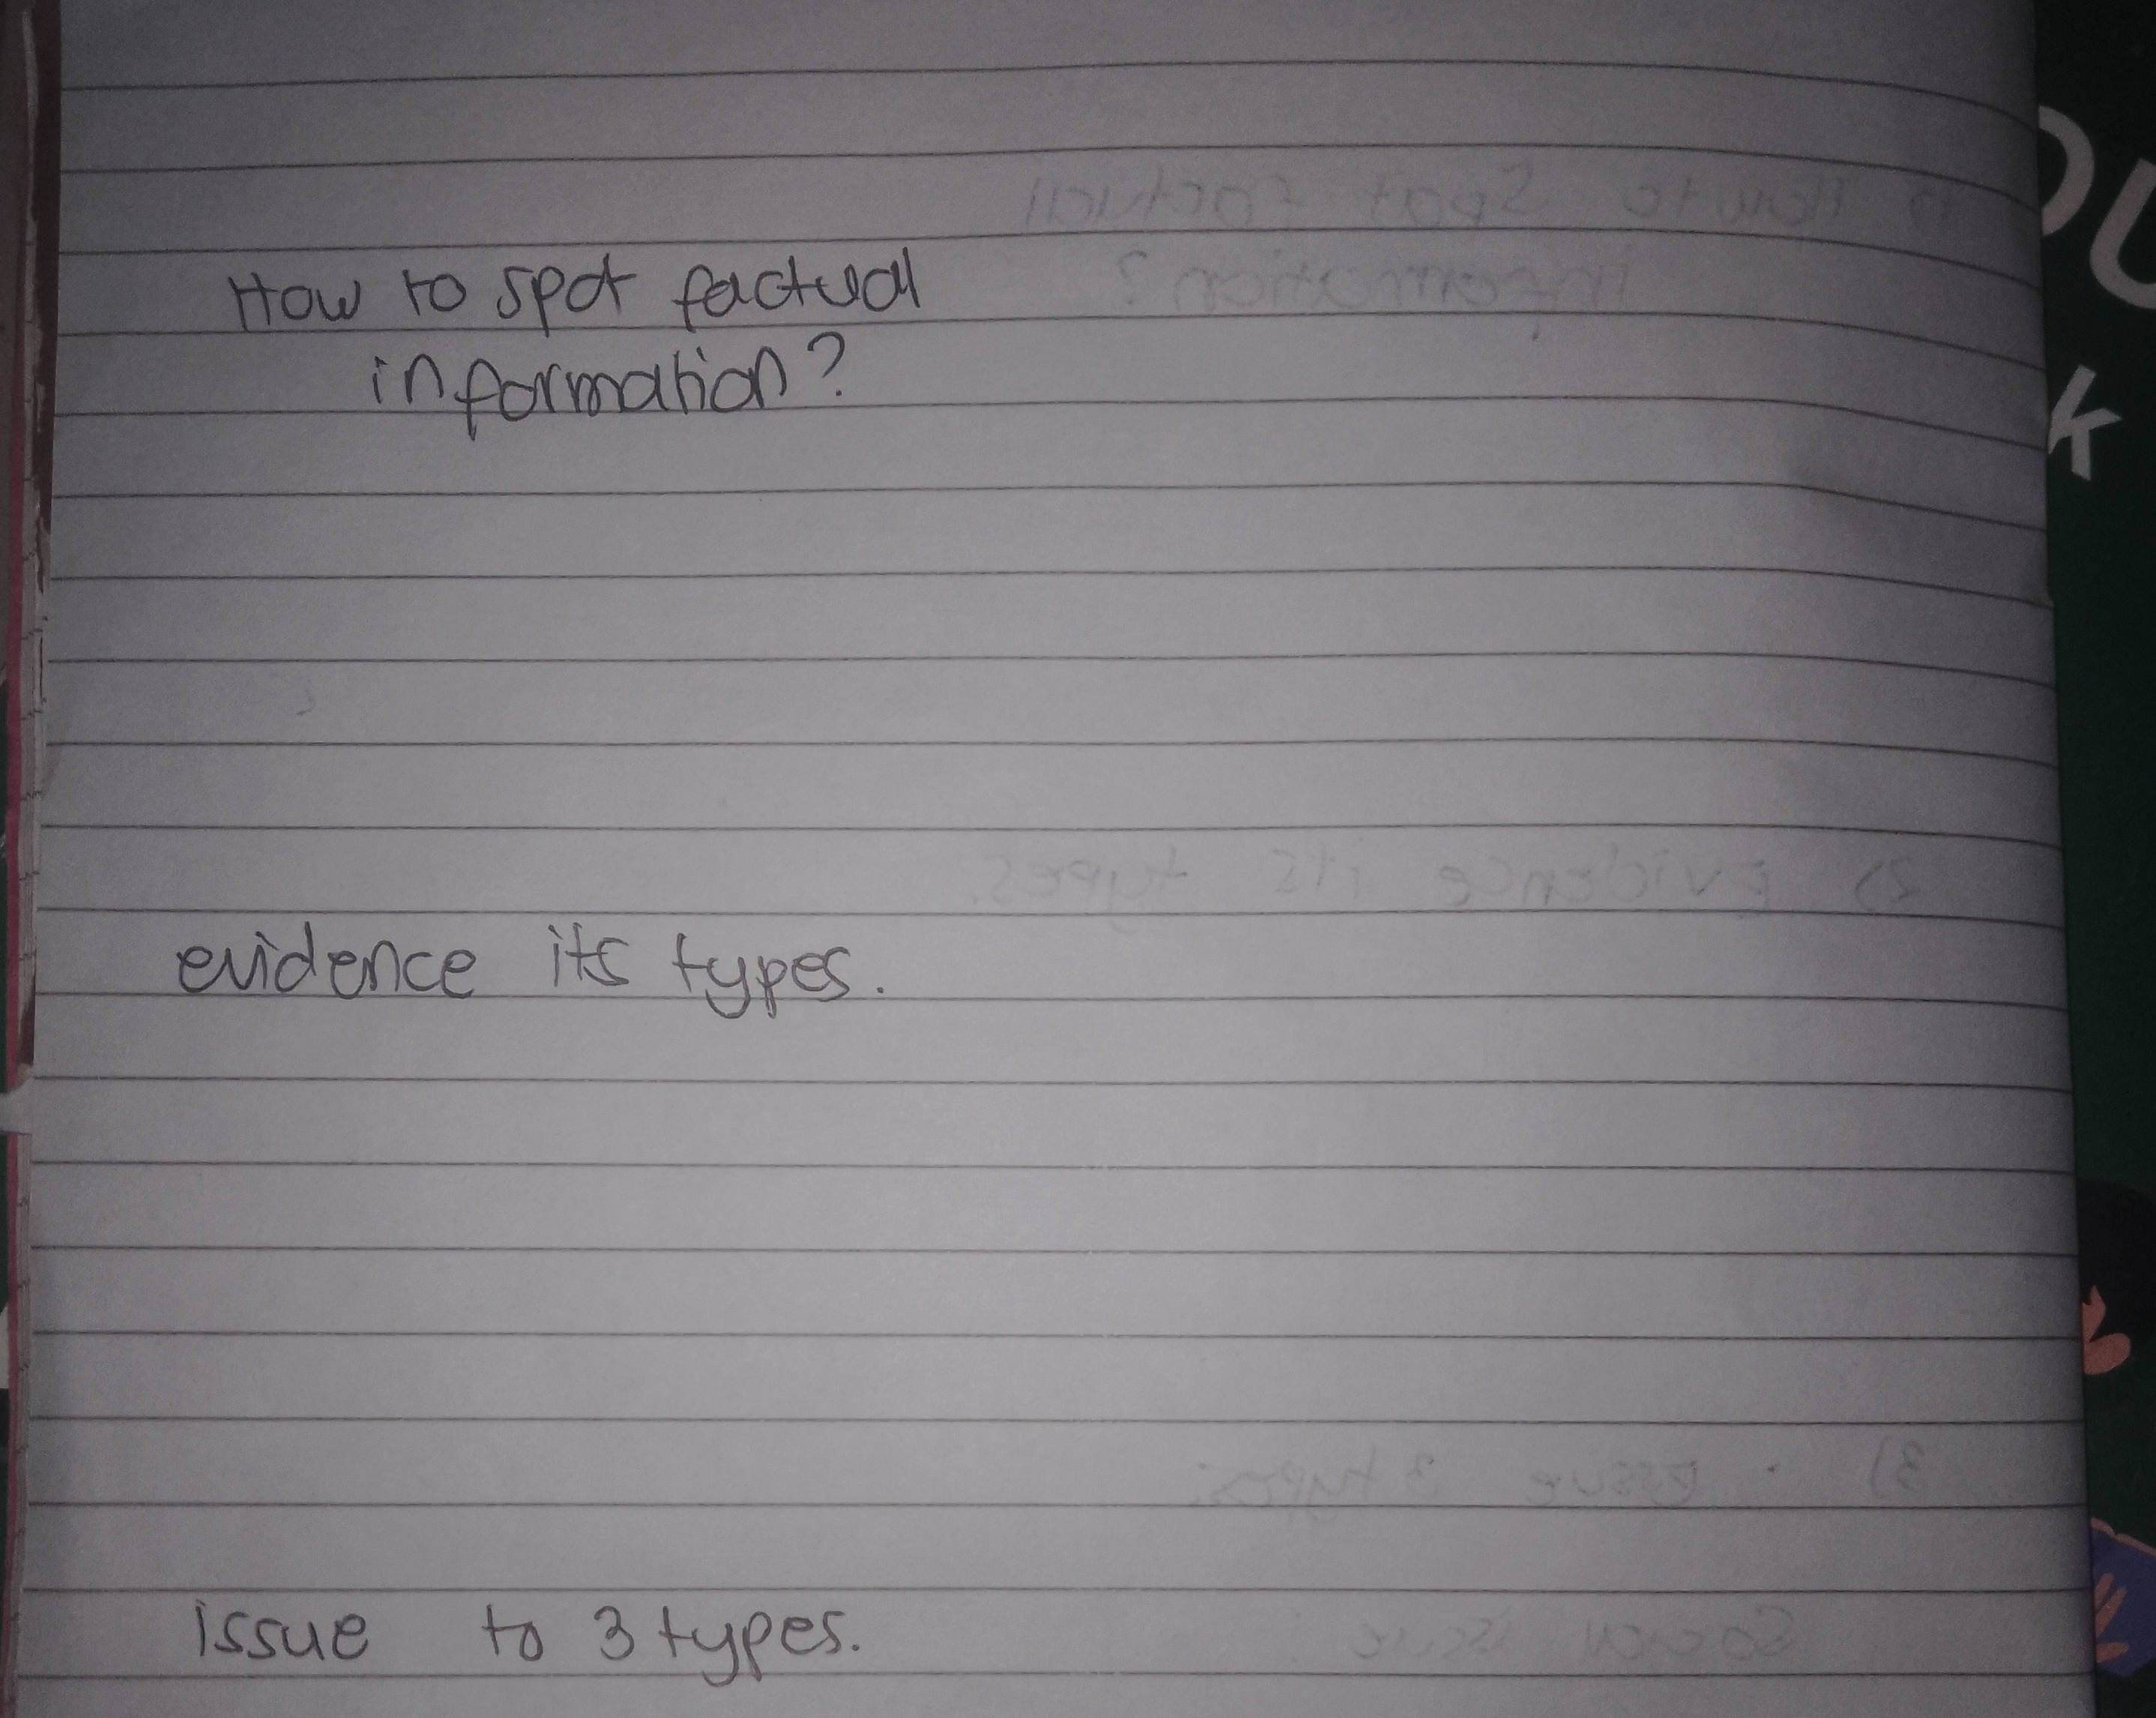 How to spot factual
information?
evidence its types.
issue to 3 types.